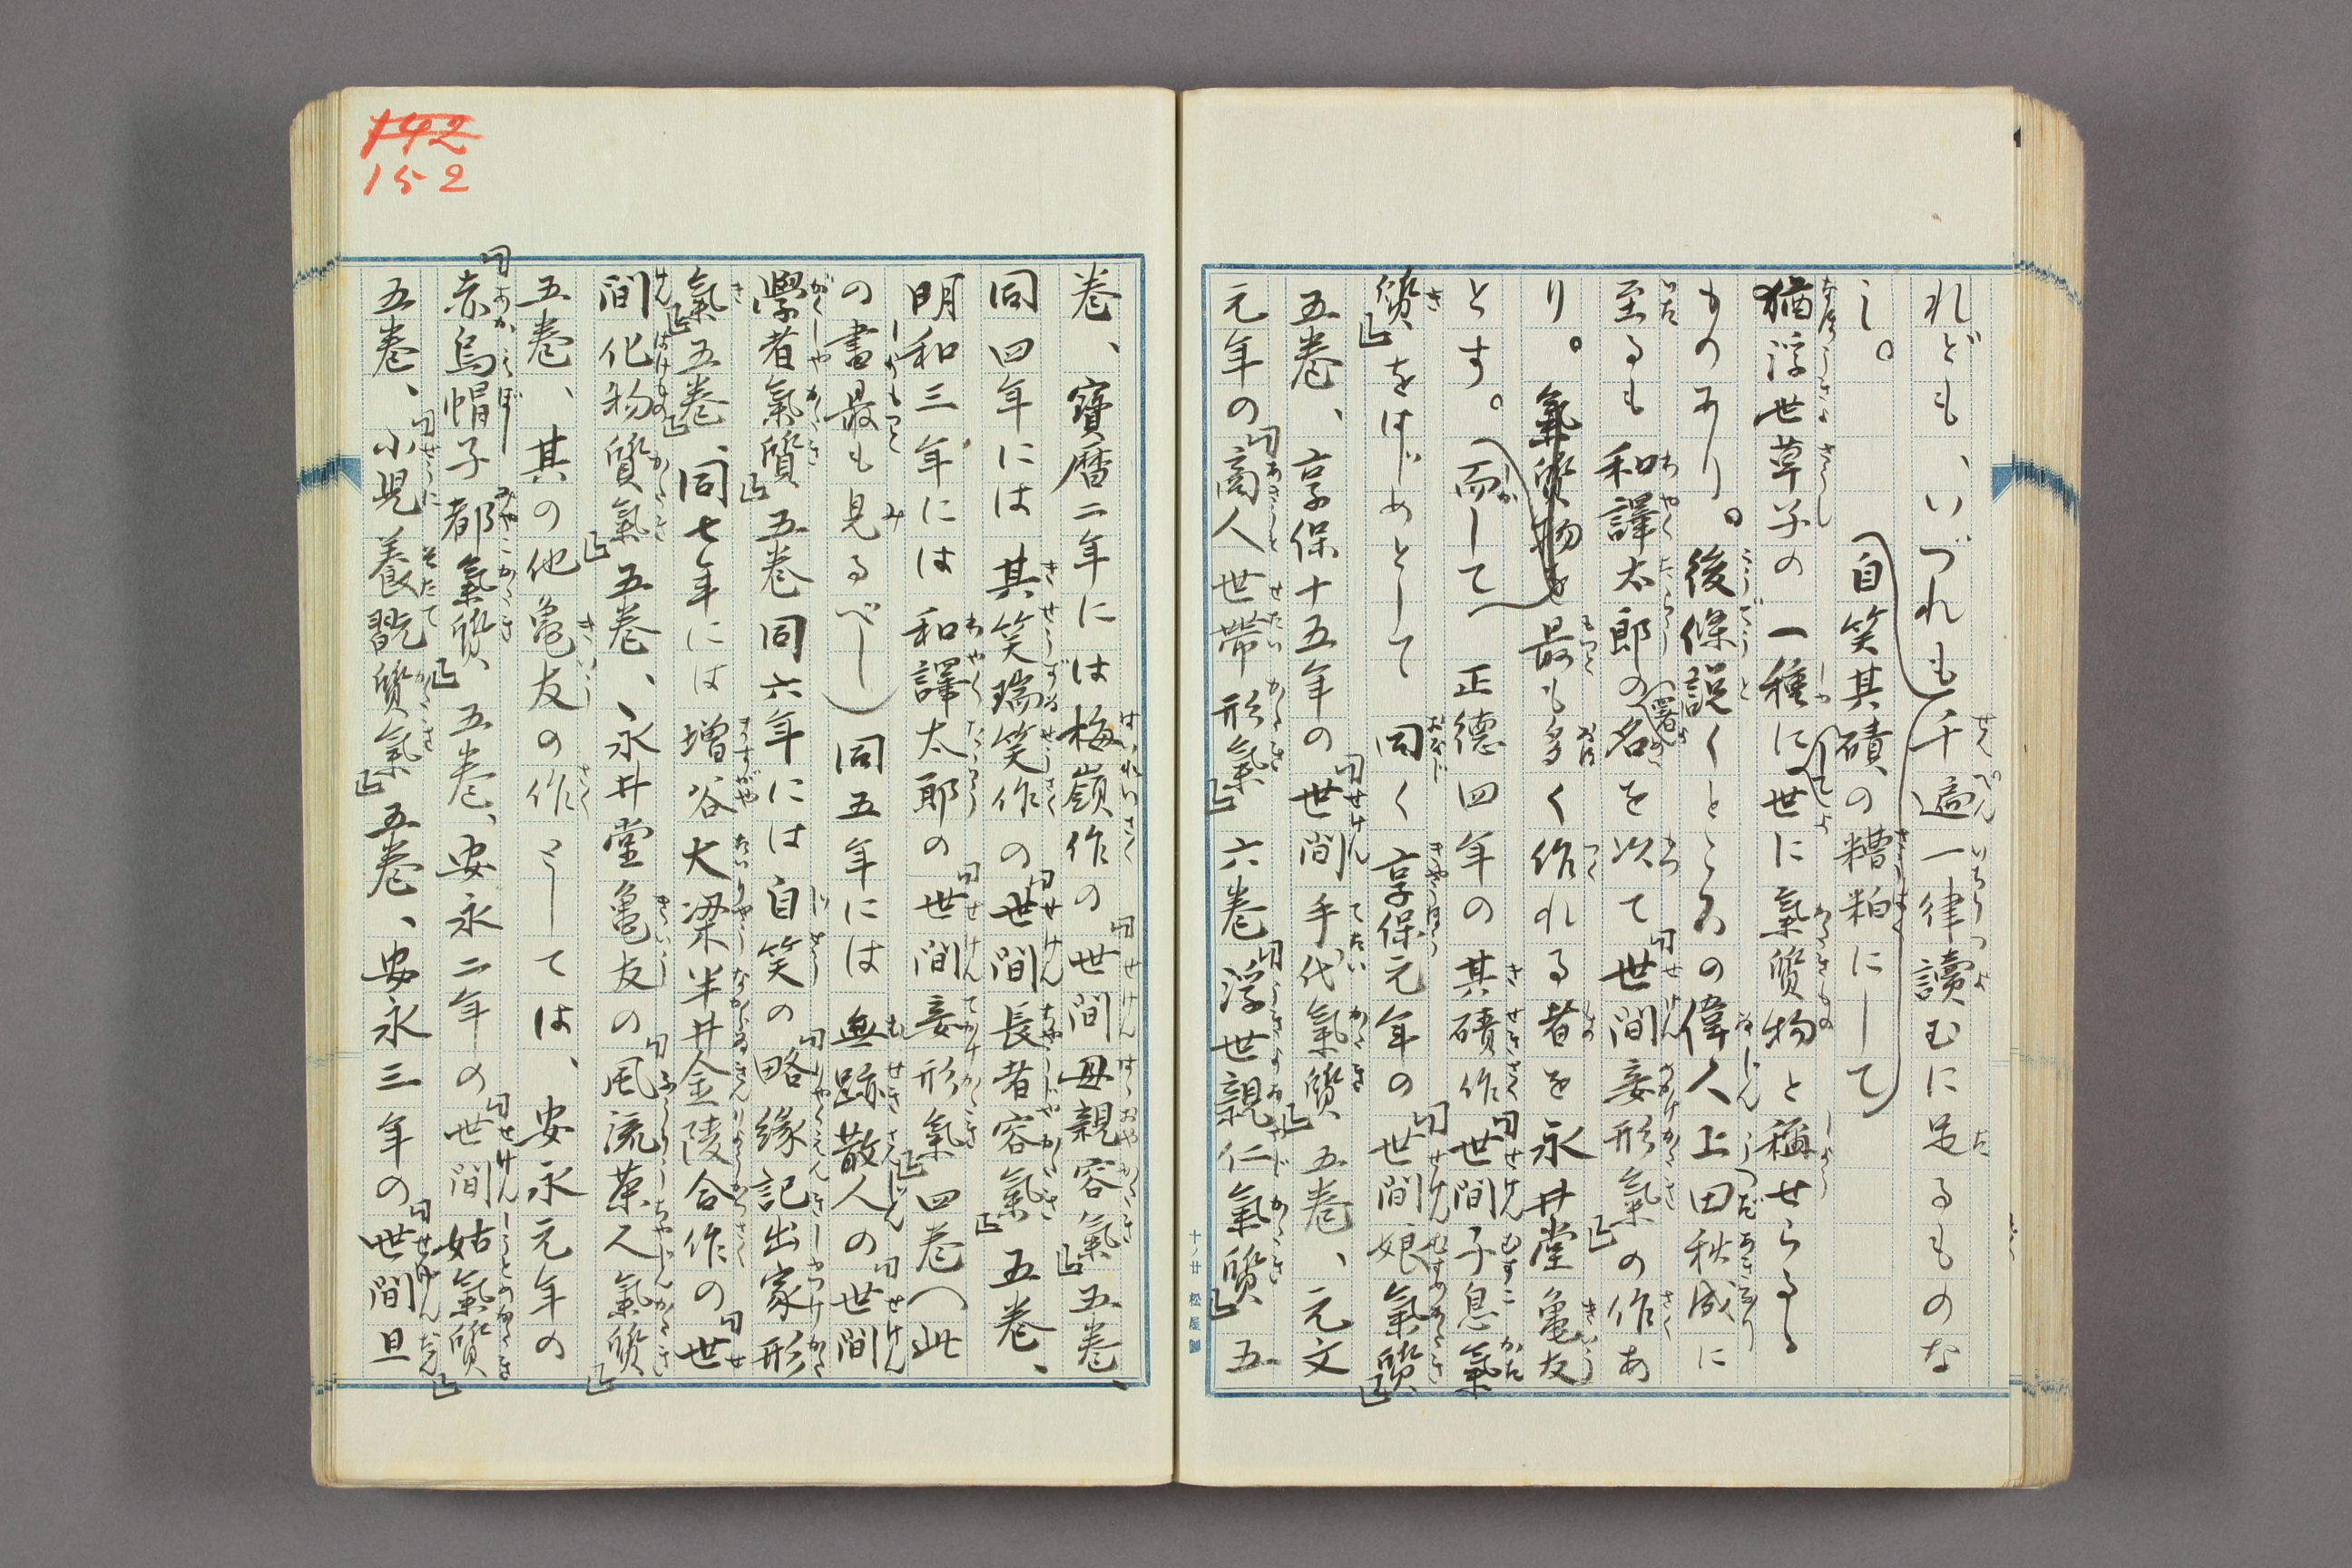 れども、いづれも千遍一律讀むに足るものな
し。自笑其磧、の糟粕にして
猶浮世草子の一種にして世に氣質物と稱せらるる
ものあり。後條説くところの偉人上田秋成に
至るも和譯太郎の署名を以て世間妾形氣の作あ
り。氣質物を最も多く作れる者を永井堂亀友
とす。而して正徳四年の其磧作世間子息氣
質をはじめとして同く享保元年の世間娘氣質
五巻、享保十五年の世間手代氣質五巻、元文
元年の商人世帶形氣六巻浮世親仁氣質五
巻、寶暦二年には梅嶺作の世間母親容氣五巻、
同四年には其笑瑞笑作の世間長者容氣五巻、
明和三年には和譯太郎の世間妾形氣四巻（此
の書最も見るべし）同五年には無跡散人の世間
學者氣質五巻同六年には自笑の略緣記出家形
氣五巻、同七年には増谷大梁半井金陵合作の世
間化物質氣五巻、永井堂亀友の風流茶人氣質
五巻、其の他亀友の作としては、安永元年の
赤烏帽子都氣質、五巻、安永二年の世間姑氣質
五巻、小児養育質氣五巻、安永三年の世間旦
142
152
十ノ廿 松屋製